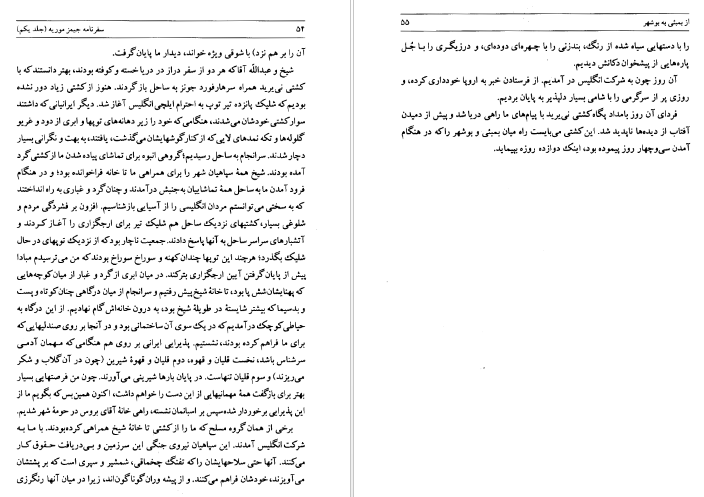 ۵۴ سفرنامه جیمز موریه (جلد یکم)
آن را بر هم نزد) با شوقی ویژه خواند، دیدار ما پایان گرفت.
شیخ و عبدالله آقا که هر دو از سفر دراز در دریا خسته و کوفته بودند، بهتر دانستند که با
کشتی نی‌برید همراه سرهارفورد جونز به ساحل بازگردند. هنوز از کشتی زیاد دور نشده
بودیم که شلیک پانزده تیر توپ به احترام ایلچی انگلیس آغاز شد. دیگر ایرانیانی که داشتند
سوار کشتی خودشان می‌شدند، هنگامی که خود را زیر دهانه‌های توپها و ابری از دود و غریو
گلوله‌ها و تکه نمدهای لایی که از کنار گوشهایشان می‌گذشت، یافتند، به بهت و نگرانی بسیار
دچار شدند. سرانجام به ساحل رسیدیم؛ گروهی انبوه برای تماشای پیاده شدن ما از کشتی گرد
آمده بودند. شیخ همهٔ سپاهیان شهر را برای همراهی ما تا خانه فراخوانده بود؛ و در هنگام
فرود آمدن ما به ساحل همهٔ تماشاییان به جنبش درآمدند و چنان گرد و غباری به راه انداختند
که به سختی می‌توانستم مردان انگلیسی را از آسیایی بازشناسیم. افزون بر فشردگی مردم و
شلوغی بسیار، کشتیهای نزدیک ساحل هم شلیک تیر برای ارجگزاری را آغاز کردند و
آتشبارهای سراسر ساحل به آنها پاسخ دادند. جمعیت ناچار بود که از نزدیک توپهای در حال
شلیک بگذرد؛ هرچند این توپها چندان کهنه و سوراخ سوراخ بودند که من می‌ترسیدم مبادا
پیش از پایان گرفتن آیین ارجگزاری بترکند. در میان ابری از گرد و غبار از میان کوچه‌هایی
که پهنایشان شش پا بود، تا خانهٔ شیخ پیش رفتیم و سرانجام از میان درگاهی چنان کوتاه و پست
و بدسیما که بیشتر شایستهٔ در طویلهٔ شیخ بود، به درون خانه‌اش گام نهادیم. از این درگاه به
حیاطی کوچک درآمدیم که در یک سوی آن ساختمانی بود و در آنجا بر روی صندلیهایی که
برای ما فراهم کرده بودند، نشستیم. پذیرایی ایرانی بر روی هم هنگامی که مهمان آدمی
سرشناس باشد، نخست قلیان و قهوه، دوم قلیان و قهوهٔ شیرین (چون در آن گلاب و شکر
می‌ریزند) و سوم قلیان تنهاست. در پایان بارها شیرینی می‌آورند. چون من فرصتهایی بسیار
بهتر برای بازگفت همهٔ مهمانیهایی از این دست را خواهم داشت، اکنون همین بس که بگویم ما از
این پذیرایی برخوردار شده سپس بر اسبانمان نشسته، راهی خانهٔ آقای بروس در حومهٔ شهر شدیم.
برخی از همان گروه مسلح که ما را از کشتی تا خانهٔ شیخ همراهی کرده بودند. با ما به
شرکت انگلیس آمدند. این سپاهیان نیروی جنگی این سرزمین و بی‌دریافت حقوق کار
می‌کنند. آنها حتی سلاحهایشان را که تفنگ چخماقی، شمشیر و سپری است که بر پشتشان
می‌آویزند، خودشان فراهم می‌کنند. و از پیشه وران گوناگون‌اند، زیرا در میان آنها رنگرزی
از بمبئی به بوشهر ۵۵
را با دستهایی سیاه شده از رنگ، بندزنی را با چهره‌ای دوده‌ای، و درزیگری را با جُل
پاره‌هایی از پیشخوان دکانش دیدیم.
آن روز چون به شرکت انگلیس در آمدیم. از فرستادن خبر به اروپا خودداری کرده، و
روزی پر از سرگرمی را با شامی بسیار دلپذیر به پایان بردیم.
فردای آن روز بامداد پگاه کشتی نی‌برید با پیام‌های ما راهی دریا شد و پیش از دمیدن
آفتاب از دیده‌ها ناپدید شد. این کشتی می‌بایست راه میان بمبئی و بوشهر را که در هنگام
آمدن سی‌وچهار روز پیموده بود، اینک دوازده روزه بپیماید.